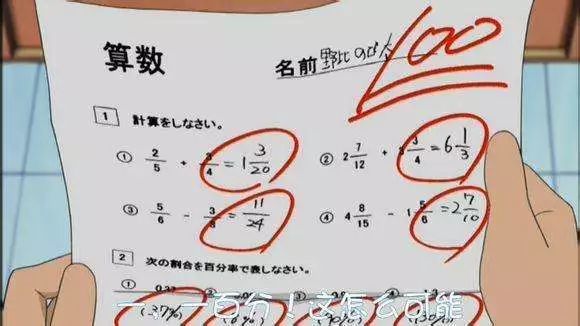 算数
名前 野比のび太
100
1 計算をしなさい。
① 2/5 + 3/4 = 1 3/20
② 2 7/12 + 3 3/4 = 6 1/3
③ 5/6 - 3/8 = 11/24
④ 4 8/15 - 1 5/6 = 2 7/10
2 次の割合を百分率で表しなさい。
① ② ③ ④
0.37
(37%)
一，一百分！这怎么可能